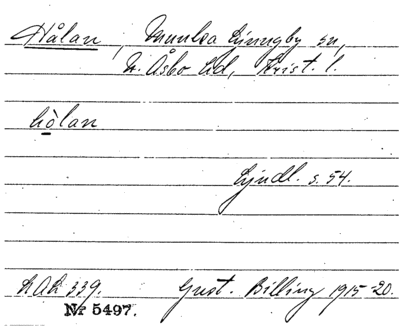 Hålan, Munka Ljungby sn,
N. Åsbo hd, Krist. l.
hòlan
Ljudl. s. 54.
LAL 339. Gust. Billing 1915-20.
Nr 5497.